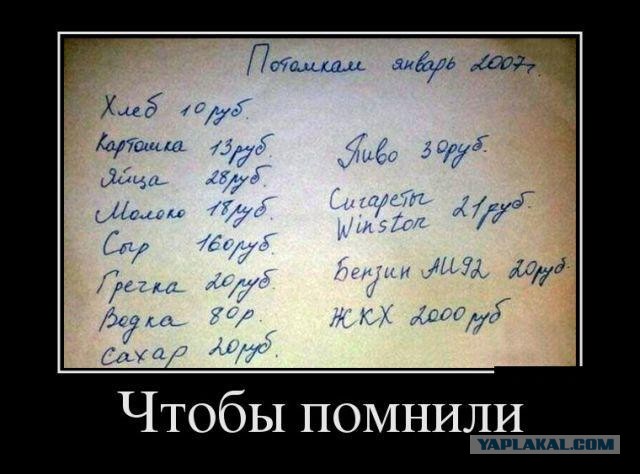 Потомкам январь 2007г.
Хлеб 10 руб.
Картошка 13руб.
Яйца 28руб.
Молоко 18руб.
Сыр 160руб.
Гречка 20руб.
Водка 80р.
Сахар 20руб.
Пиво 30руб.
Сигареты
Winston 21руб.
Бензин АИ92 20руб.
ЖКХ 2000руб
Чтобы помнили
YAPLAKAL.COM